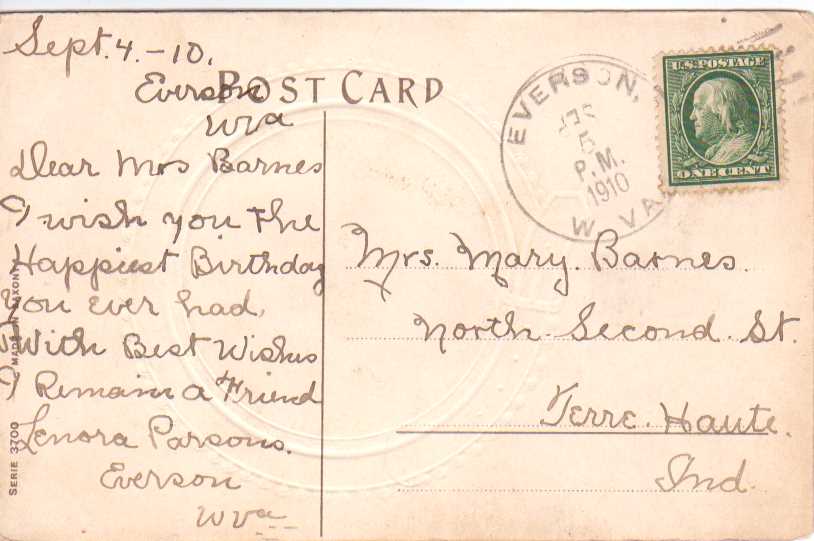 Sept. 4.-10.
Everson
W Va
POST CARD
Dear Mrs Barnes
I wish you the
Happiest Birthday
You ever had,
With Best Wishes
I Remain a Friend
Lenora Parsons.
Everson
W Va
SERIE 3700
MADE IN SAXONY
EVERSON,
5
P.M.
1910
W. VA.
U.S. POSTAGE
ONE CENT
Mrs. Mary. Barnes.
North. Second. St.
Terre. Haute.
Ind.